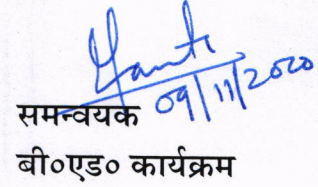 09/11/2020
समन्वयक
बी०एड० कार्यक्रम